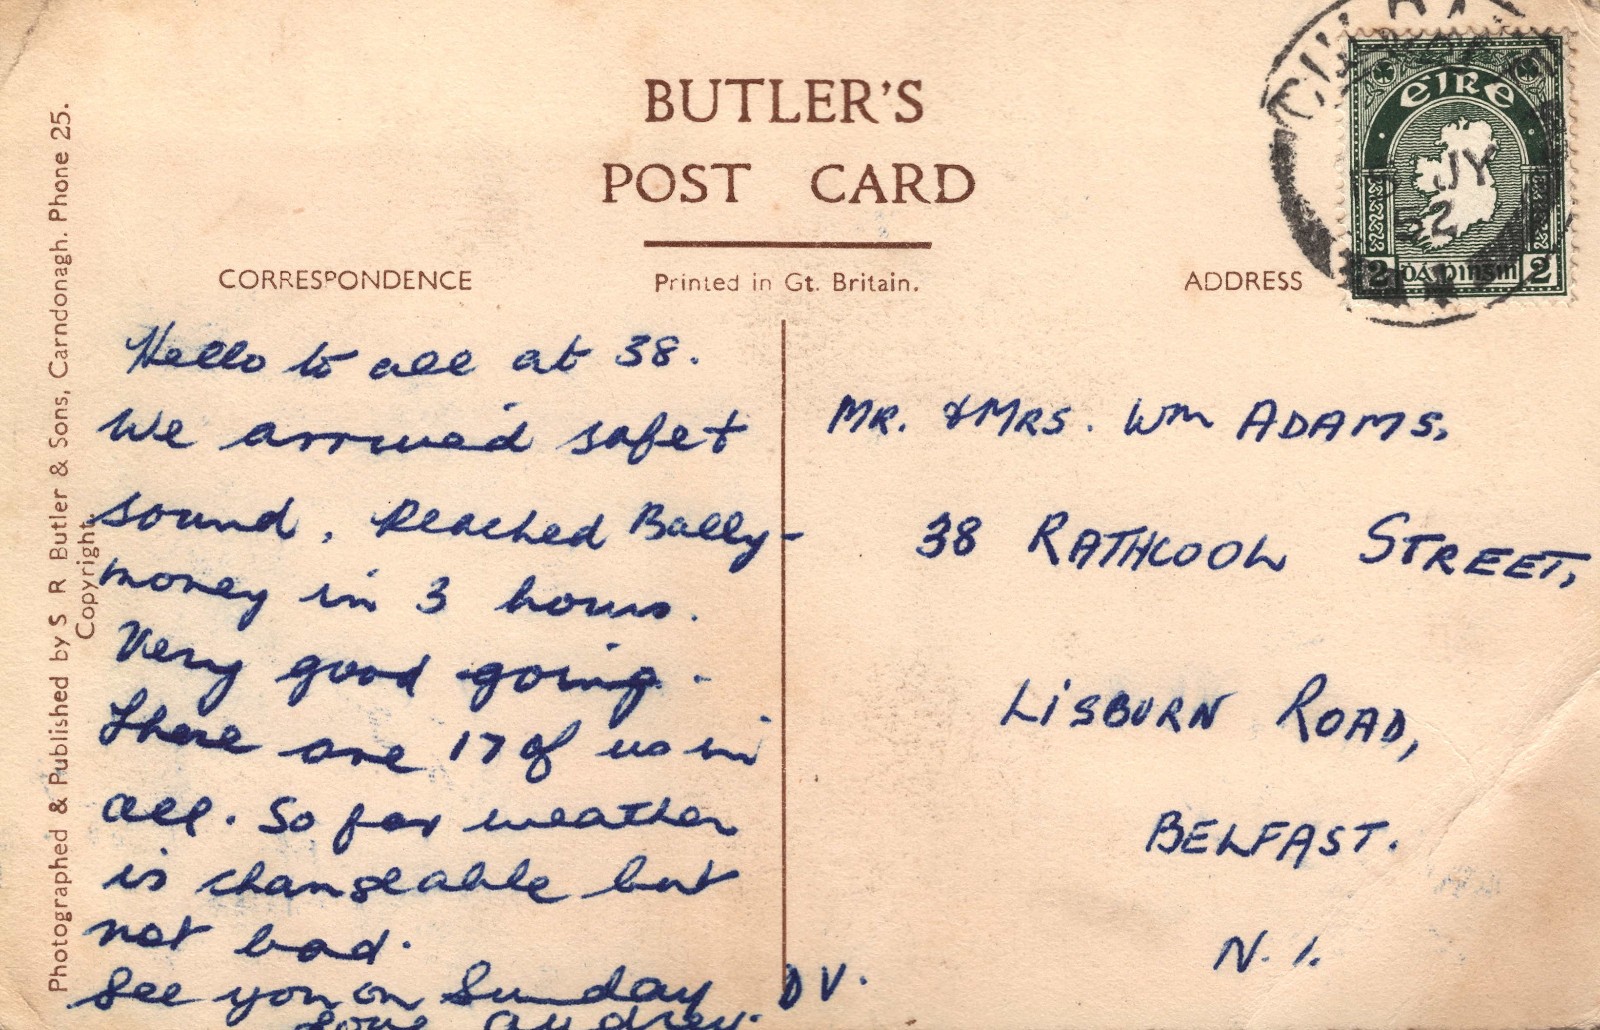 BUTLER'S
POST CARD
CORRESPONDENCE
Printed in Gt. Britain.
ADDRESS
Photographed & Published by S R Butler & Sons, Carndonagh. Phone 25.
Copyright.
Hello to all at 38.
We arrived safe +
sound. Reached Bally-
money in 3 hours.
Very good going.
There are 17 of us in
all. So far weather
is changeable but
not bad.
See you on Sunday DV.
Love Audrey.
MR. & MRS. Wm ADAMS,
38 RATHCOOL STREET,
LISBURN ROAD,
BELFAST.
N. I.
EIRE
JY
52
2 DÁ PINSIN 2